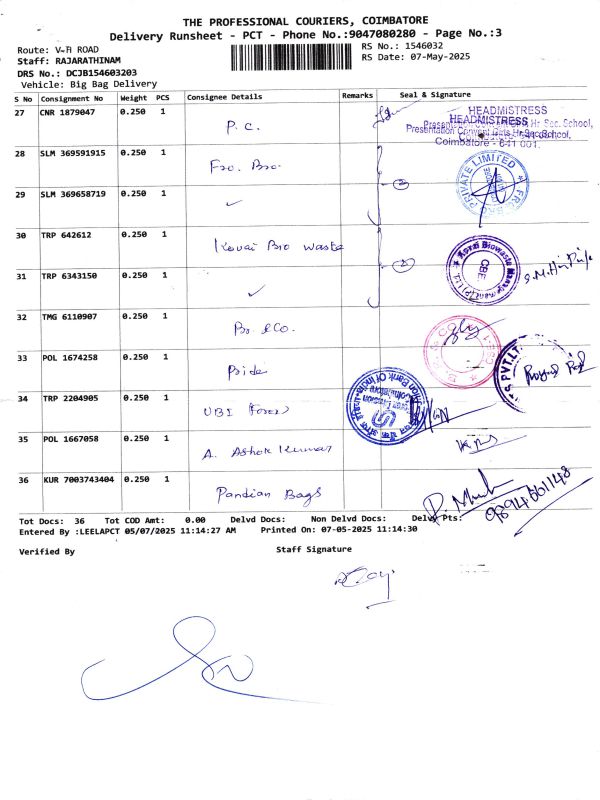 THE PROFESSIONAL COURIERS, COIMBATORE
Delivery Runsheet - PCT - Phone No.:9047080280 - Page No.:3
Route: V-H ROAD
RS No.: 1546032
Staff: RAJARATHINAM
RS Date: 07-May-2025
DRS No.: DCJB154603203
Vehicle: Big Bag Delivery
S No Consignment No Weight PCS Consignee Details Remarks Seal & Signature
27 CNR 1879047 0.250 1 P. C.
HEADMISTRESS
HEADMISTRESS
Presentation Convent Girls Hr Sec School,
Coimbatore - 641 001.
28 SLM 369591915 0.250 1 Fro. Bro.
PRIVATE LIMITED
29 SLM 369658719 0.250 1 ✓
30 TRP 642612 0.250 1 Kovai Bio Waste
Kovai Biowaste Management (P) Ltd.
CBE
31 TRP 6343150 0.250 1 ✓
32 TMG 6110907 0.250 1 Br. &Co.
33 POL 1674258 0.250 1 Bride
S PVT.LT
34 TRP 2204905 0.250 1 UBI Forex
Union Bank Of India
35 POL 1667058 0.250 1 A. Ashok Kumar
36 KUR 7003743404 0.250 1 Pandian Bags
9894561148
Tot Docs: 36 Tot COD Amt: 0.00 Delvd Docs: Non Delvd Docs: Delvd Pts:
Entered By :LEELAPCT 05/07/2025 11:14:27 AM Printed On: 07-05-2025 11:14:30
Verified By Staff Signature